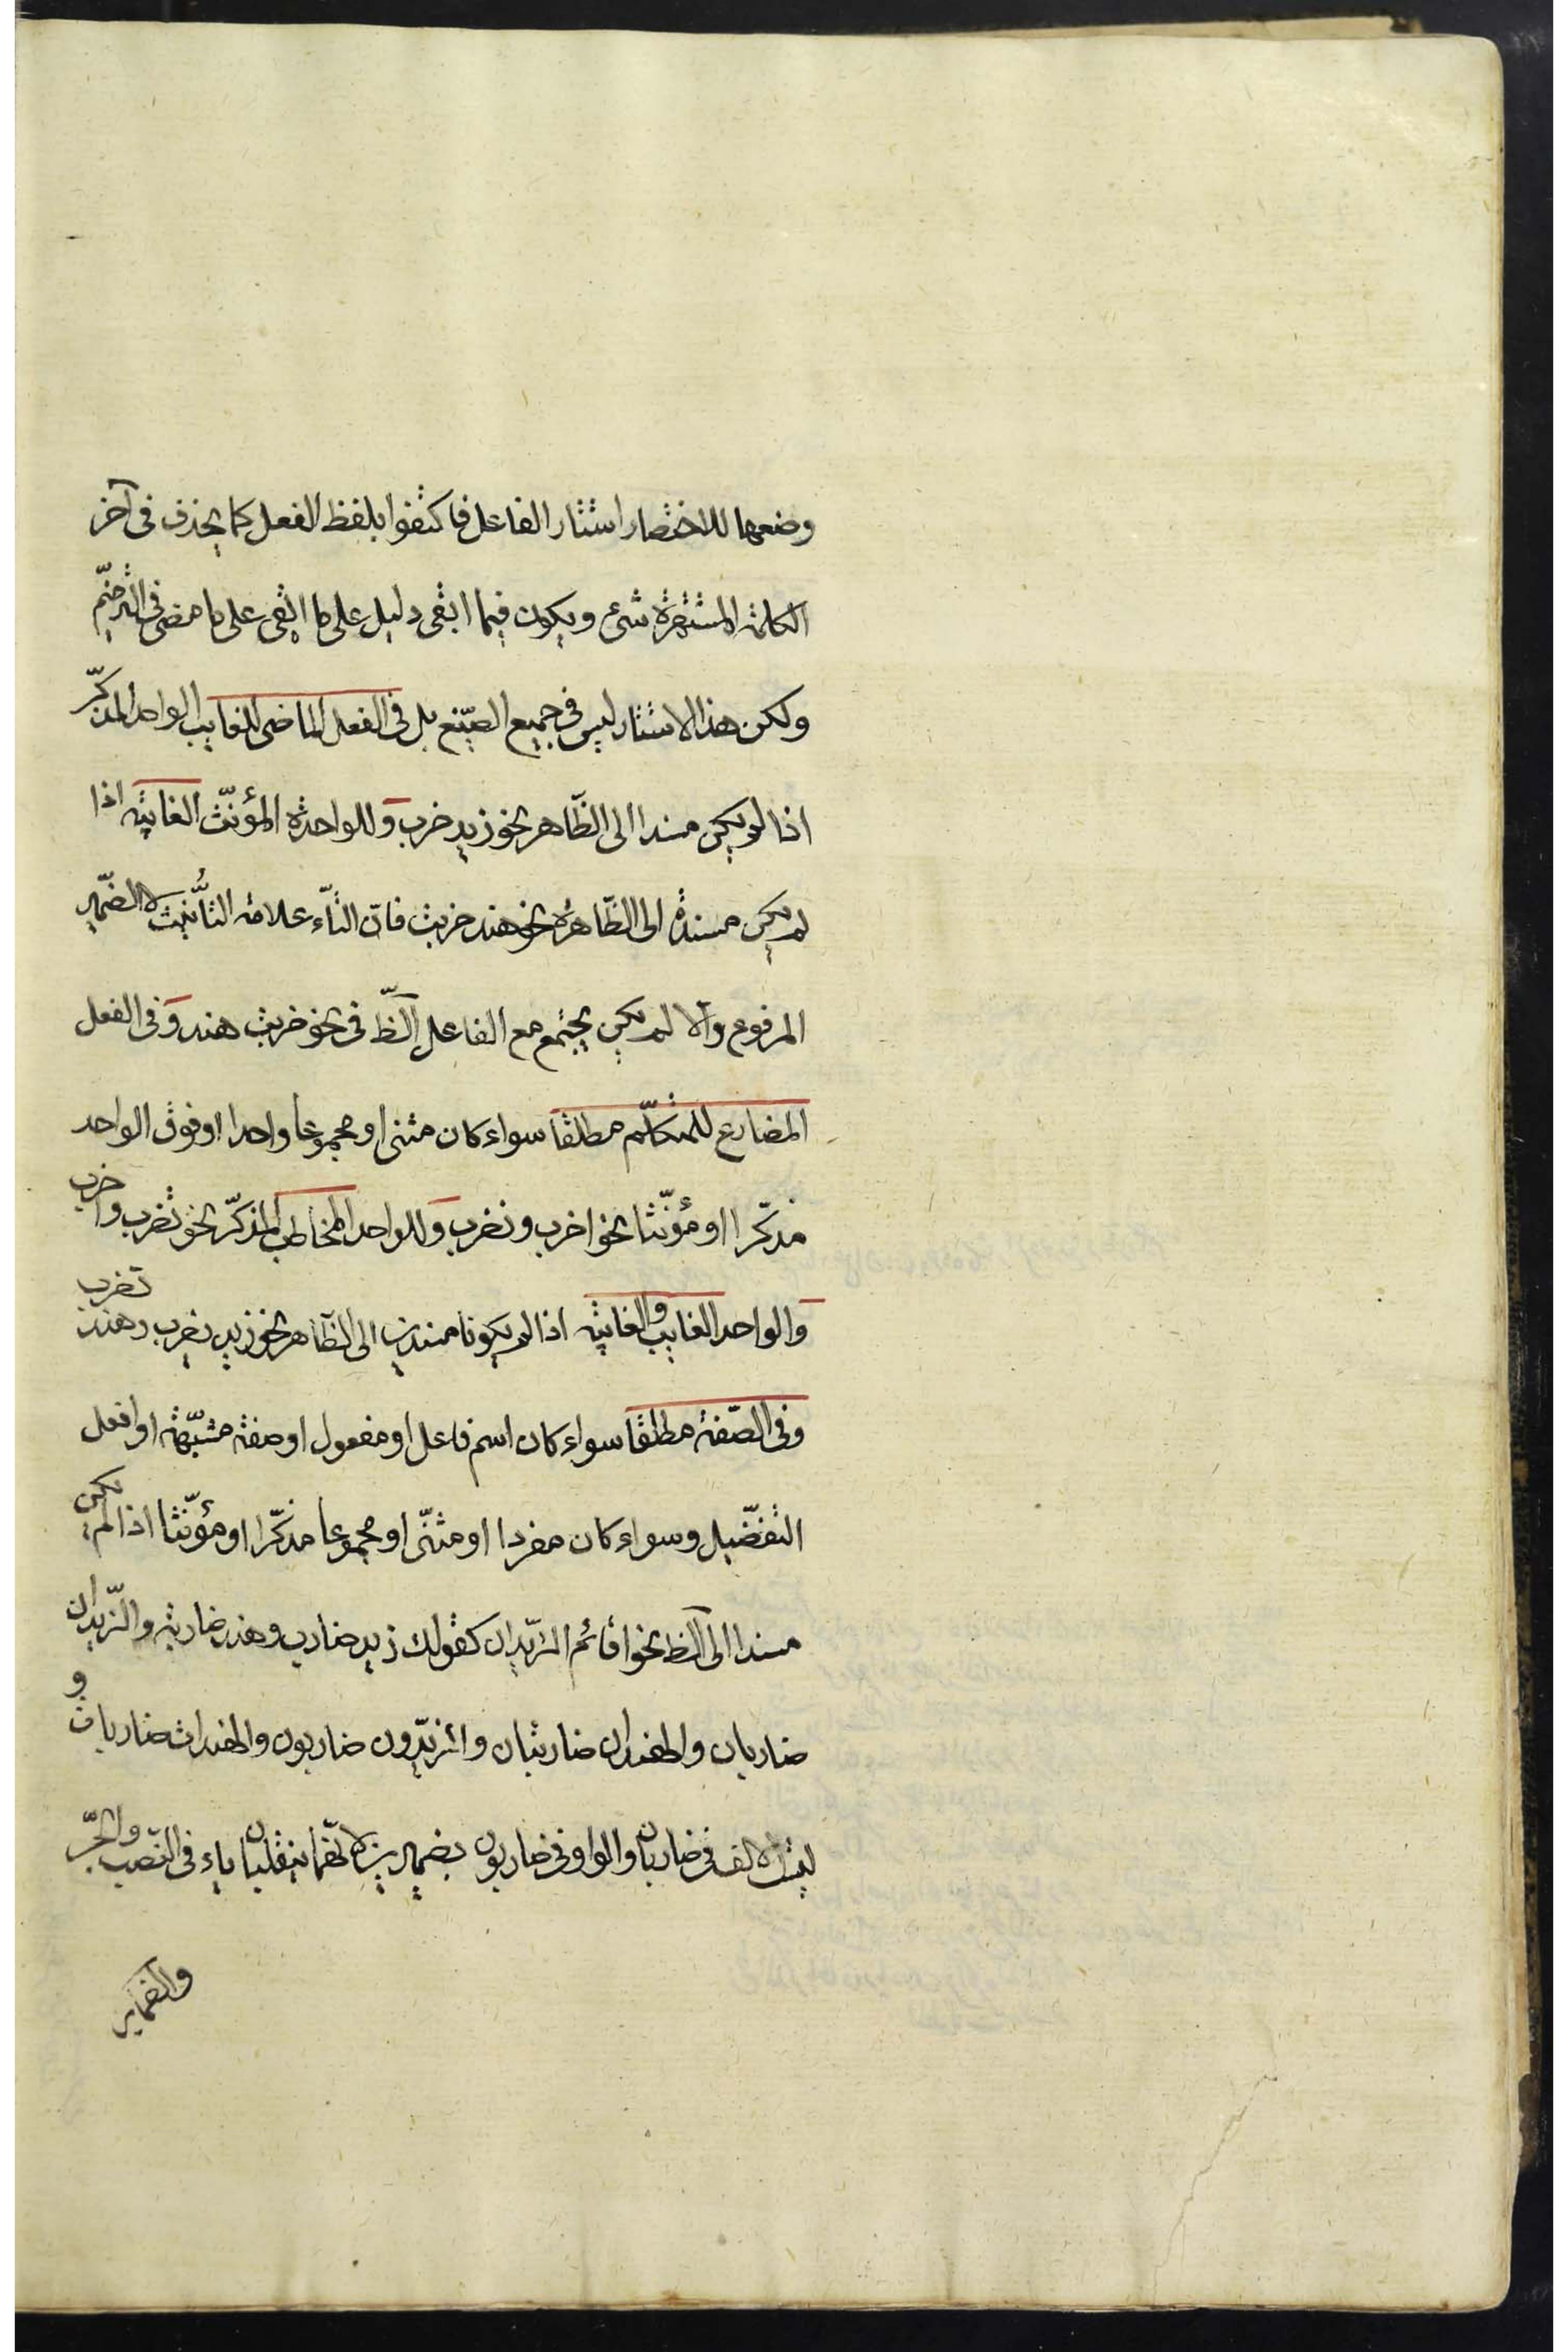 وضعها للاختصار استتار الفاعل فاكتفوا بلفظ الفعل كما يحذف فى آخر
الكلمة المشتهرة شئ ويكون فيما ابقى دليل على ما القى على ما مضى فى الترخيم
ولكن هذا الاستتار ليس فى جميع الصيّغ بل فى الفعل الماضى للغايب الواحد المذكّر
اذا لم يكن مسندا الى الظّاهر نحو زيد ضرب وللواحدة المؤنّث الغائبة اذا
لم يكن مسندة الى الظّاهرة نحو هند ضربت فانّ التّاء علامة التأنيث لا الضّمير
المرفوع والا لم يكن يجتمع مع الفاعل الظّ فى نحو ضربت هند وفى الفعل
المضارع للمتكلّم مطلقا سواء كان مثنى او مجموعا واحدا او فوق الواحد
مذكّرا او مؤنّثا نحو اضرب ونضرب وللواحد المخاطب المذكّر نحو تضرب واضرب
والواحد الغايب والغائبة اذا لم يكونا مسندين الى الظّاهر نحو زيد يضرب وهند تضرب
وفى الصّفة مطلقا سواء كان اسم فاعل او مفعول او صفة مشبّهة او افعل
التفضّيل وسواء كان مفردا او مثنّى او مجموعا مذكّرا او مؤنّثا اذا لم يكن
مسندا الى الظ نحو اقائم الزّيدان كقولك زيد ضارب وهند ضاربة والزّيدان
ضاربان والهندان ضاربتان والزيّدون ضاربون والهندات ضاربات و
ليست الالف فى ضاربان والواو فى ضاربون بضميرين لانّهما ينقلبان ياء فى النّصب والجرّ
والضماير